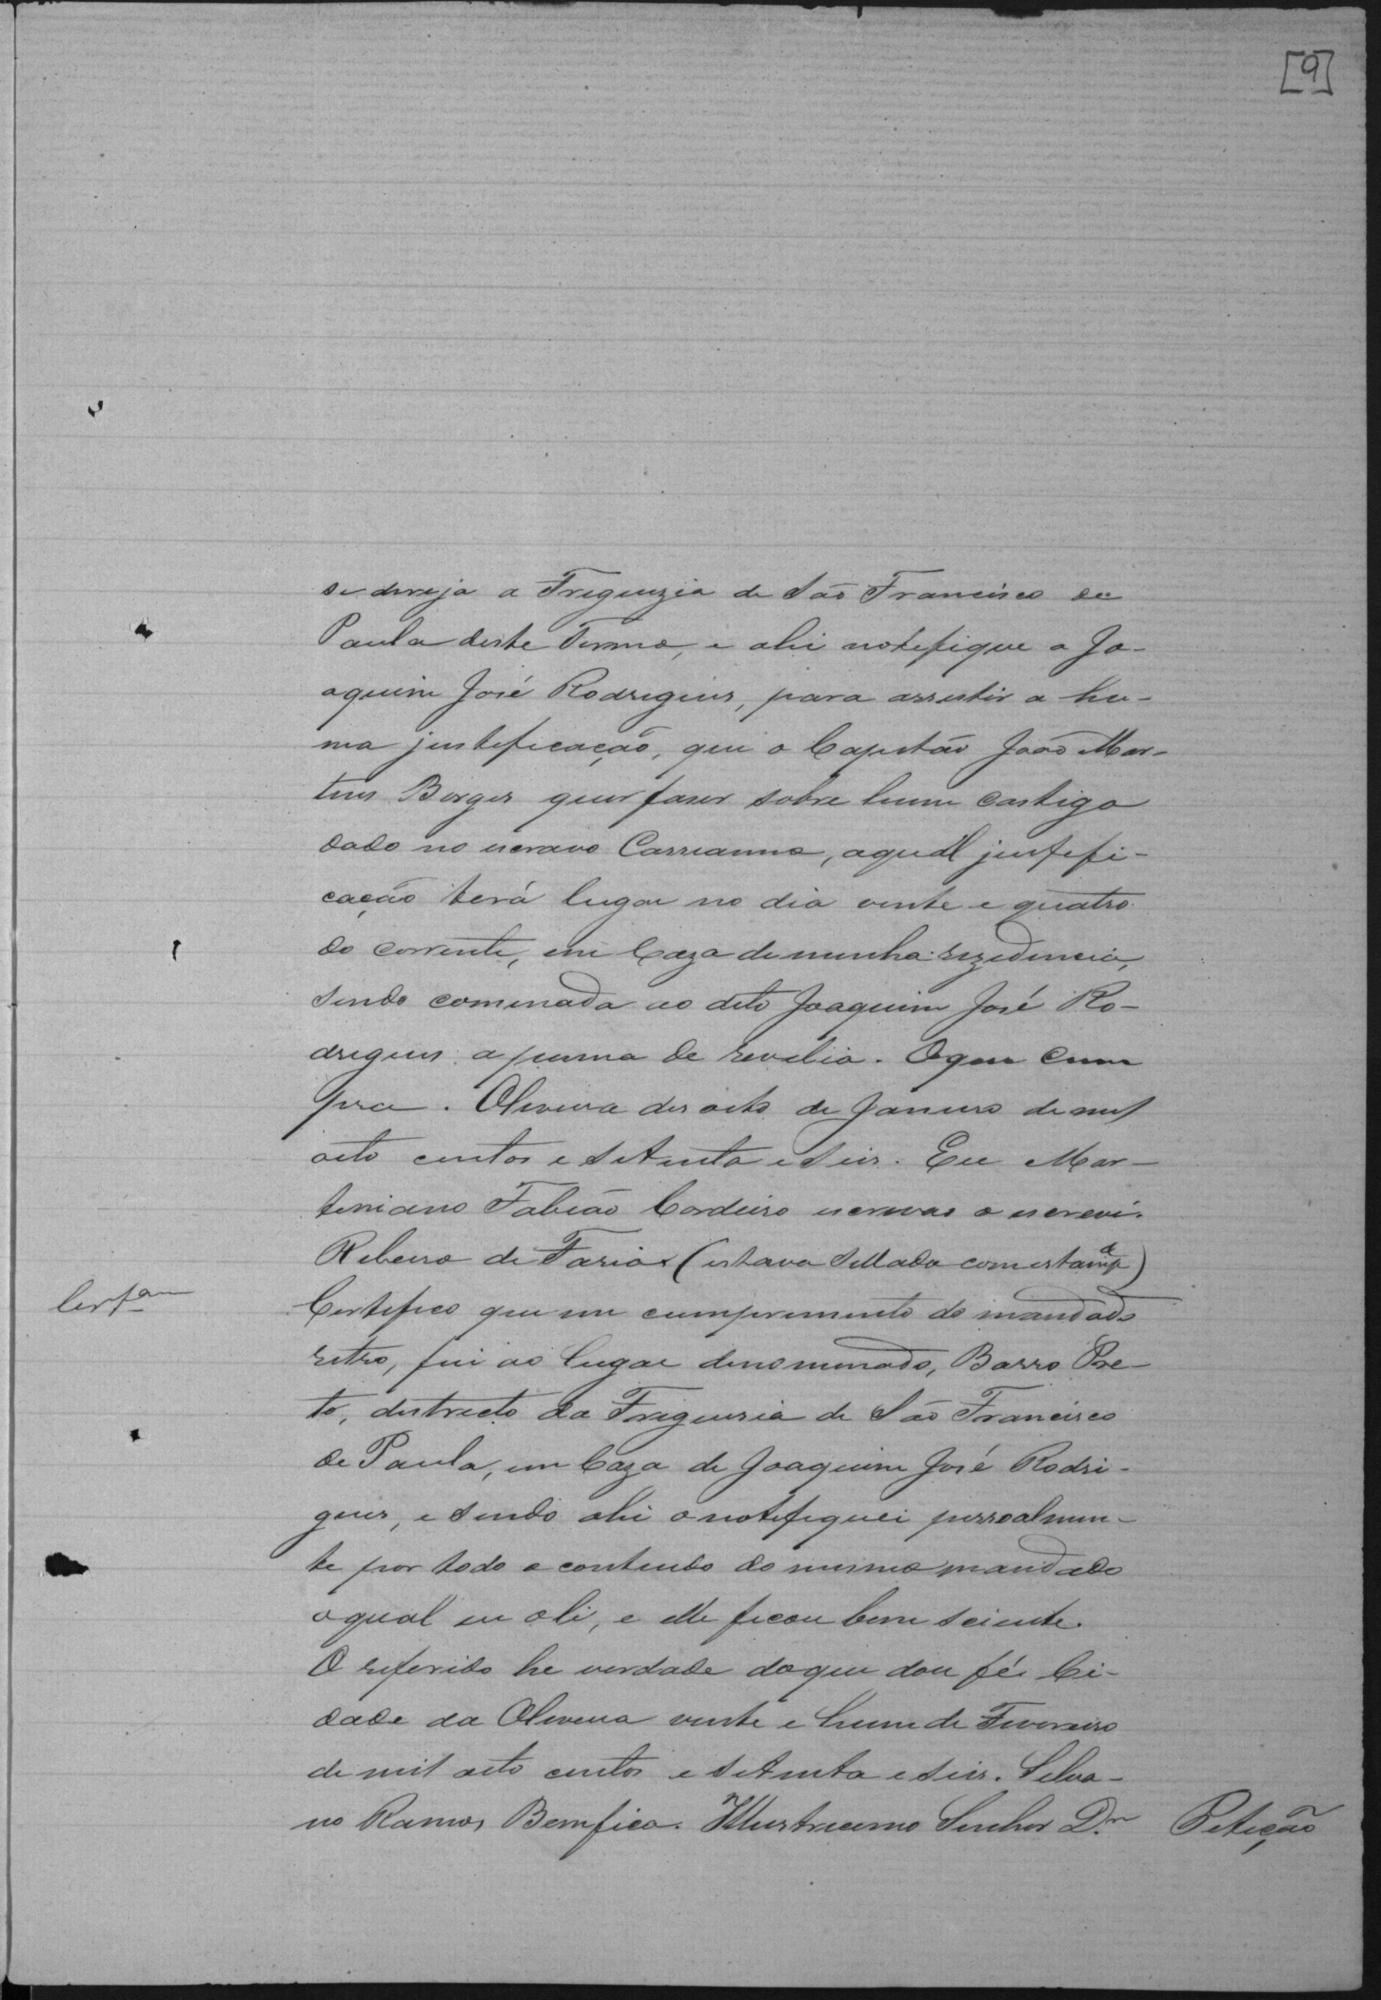 [9]
se dereja a Freguezia de São Francisco de
Paula deste Termo, e ahi notefique a Jo-
aquim José Rodrigues, para assestir a hu-
ma justeficação, que o Capetão João Mar-
tins Borges quer faser sobre hum castigo
dado no escravo Cassianno, aqual justefi-
cação terá lugar no dia vinte e quatro
do corrente, em Caza de minha rezedencia,
sendo comenada ao dito Joaquim José Ro-
drigues a penna de revelia. Oque cum
pra. Oliveira desoito de Janeiro de mil
oito centos e setenta e seis. Eu Mar-
teniano Fabião Cordeiro escrivão o escrevi.
Rebeiro de Faria (estava sellada com estampª)
Certᵃᵐ
Certefico que em cumprimento do mandado
retro, fui ao lugar denominado, Barro Pre-
to, destrecto da Freguesia de São Francisco
de Paula, em Caza de Joaquim José Rodri-
gues, e sendo ahi o notefiquei pessoalmen-
te por todo o conteudo do mesmo mandado
oqual eu oli, e elle ficou bem sciente.
O referido he verdade doque dou fé. Ci-
dade da Oliveira vinte e hum de Fevereiro
de mil oito centos e setenta e seis. Selva-
no Ramos Bemfica. Illustrecemo Senhor Dʳ
Peteção